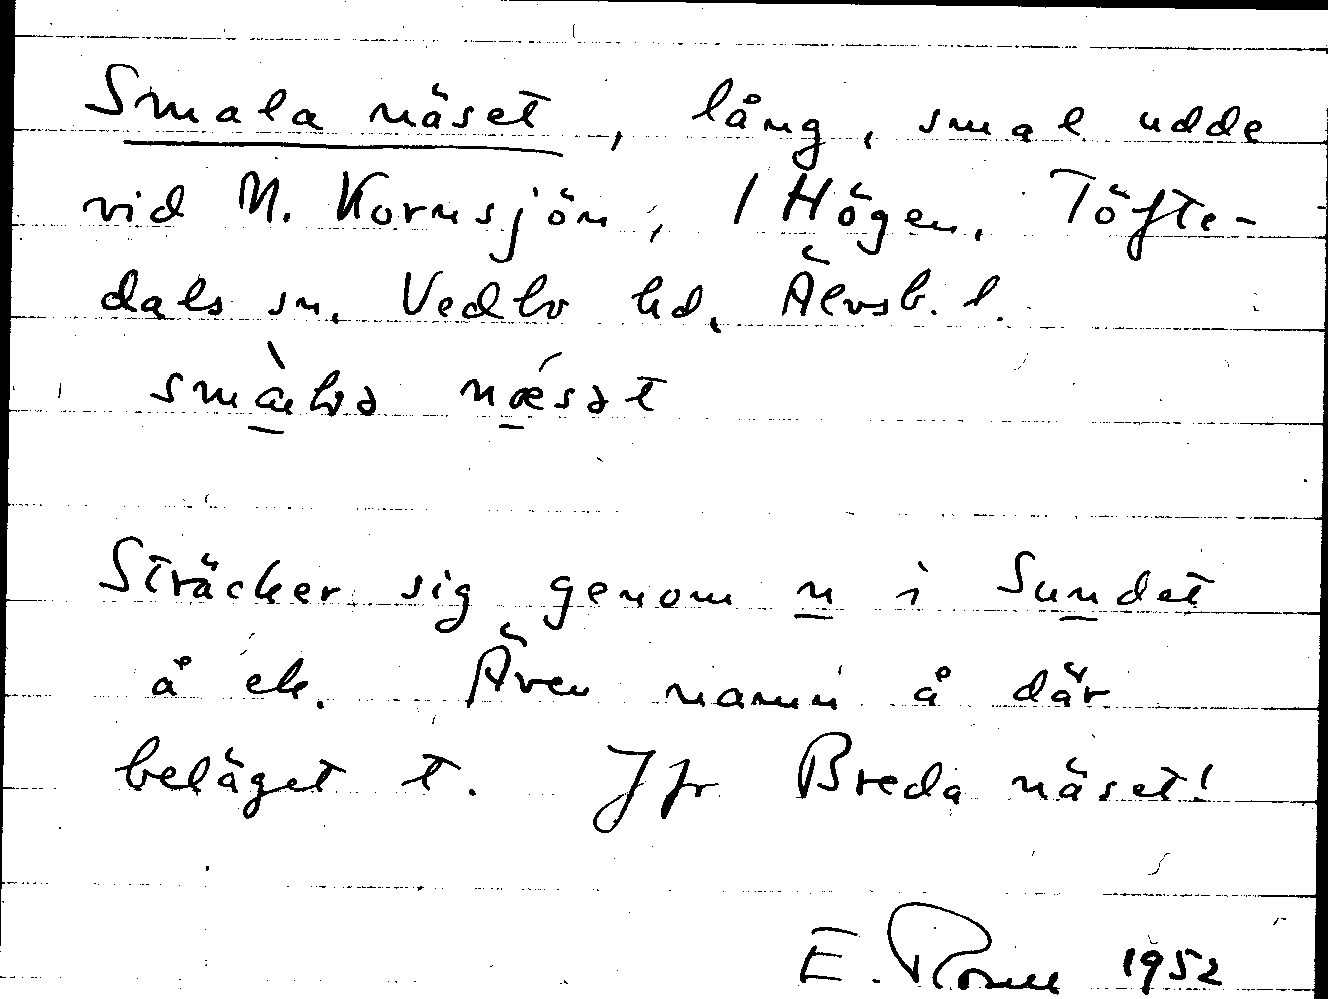 Smala näset, lång, smal udde
vid N. Kornsjön, 1 Högen, Töfte-
dals sn. Vedbo hd, Älvsb. l.
næsət
Sträcker sig genom n i Sundet
å ek. Även namn å där
beläget t. Jfr Breda näset!
E. 1952